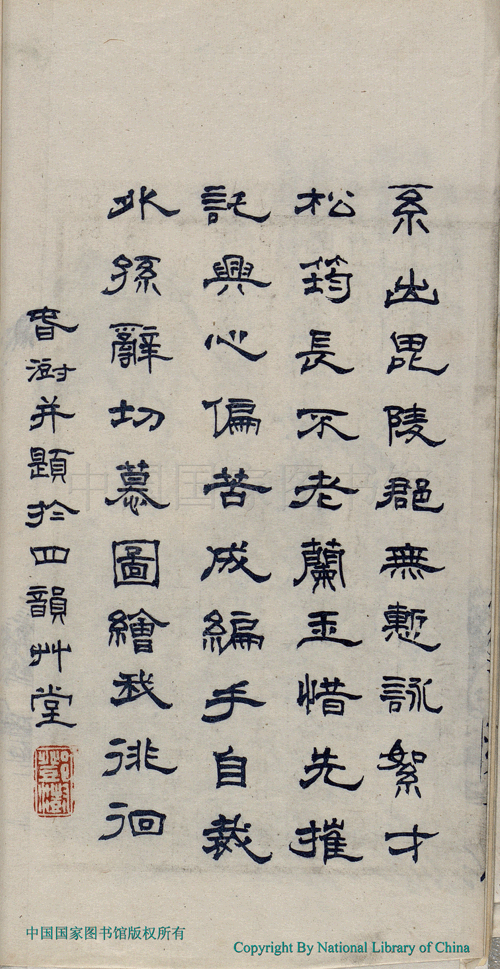 系出毘陵郡無慙詠絮才
松筠長不老蘭玉惜先摧
託興心偏苦成編手自裁
外孫辭切慕圖繪我徘徊
春澍并題於四韻艸堂
鄧澍
中国国家图书馆
中国国家图书馆版权所有
Copyright By National Library of China